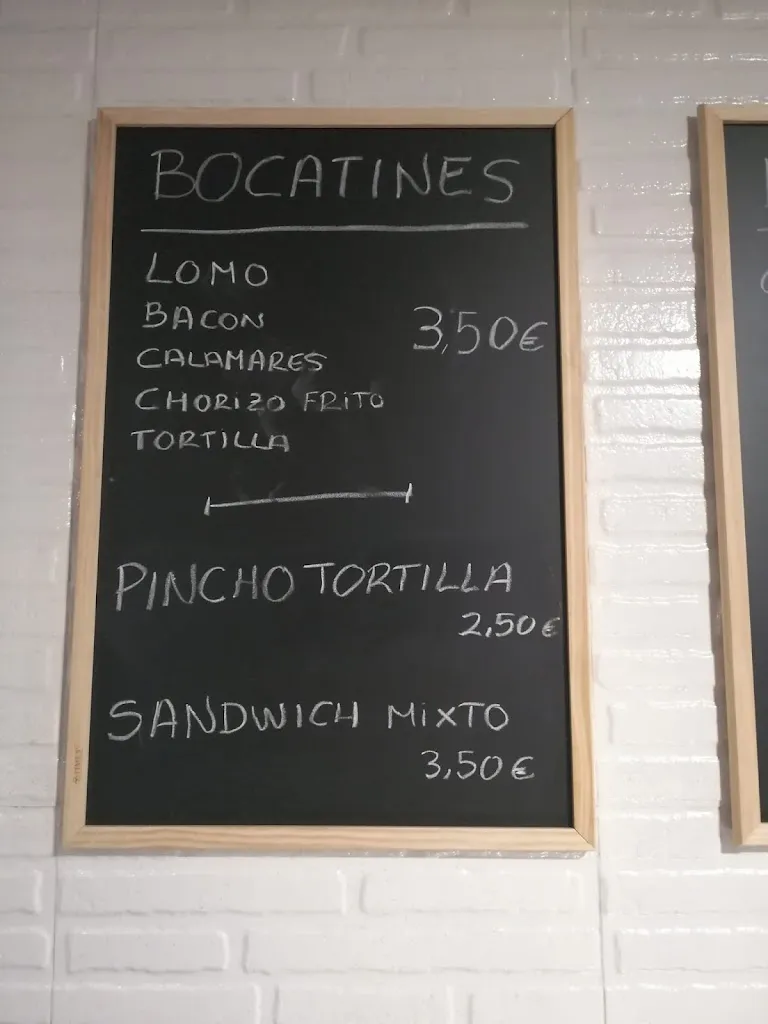 BOCATINES
LOMO
BACON
3,50€
CALAMARES
CHORIZO FRITO
TORTILLA
PINCHO TORTILLA
2,50€
SANDWICH MiXTO
3,50€